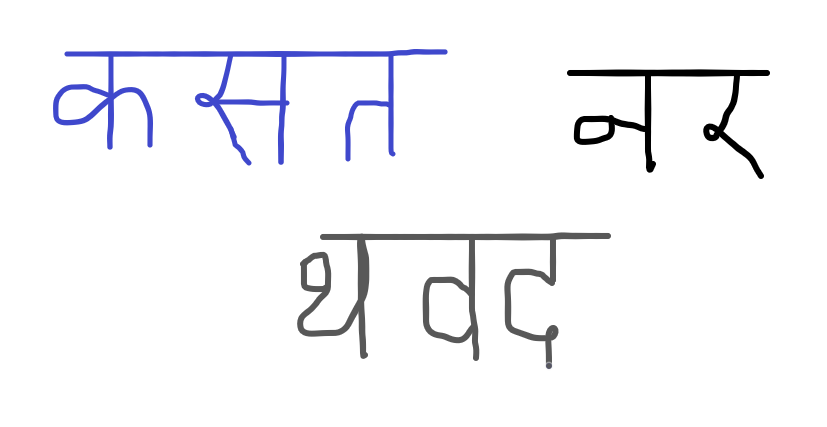 कसत नर
थवद